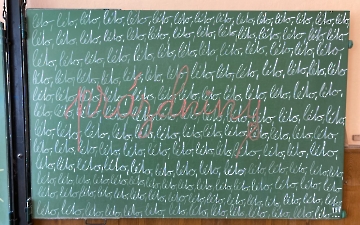 léto, léto, léto, léto, léto, léto, léto, léto, léto, léto, léto, léto, léto, léto,
léto, léto, léto, léto, léto, léto, léto, léto, léto, léto, léto, léto, léto, léto,
léto, léto, léto, léto, léto, léto, léto, léto, léto, léto, léto, léto, léto,
léto, léto, léto, léto, léto, léto, léto, léto, léto, léto, léto, léto, léto,
léto, léto, léto, léto, léto, léto, léto, léto, léto, léto, léto, léto, léto,
prázdniny
léto, léto, léto, léto, léto, léto, léto, léto, léto, léto, léto, léto, léto,
léto, léto, léto, léto, léto, léto, léto, léto, léto, léto, léto, léto, léto,
léto, léto, léto, léto, léto, léto, léto, léto, léto, léto, léto, léto, léto,
léto, léto, léto, léto, léto, léto, léto, léto, léto, léto, léto, léto, léto,
léto, léto, léto, léto, léto, léto, léto, léto, léto, léto, léto, léto, léto, léto,
léto, léto, léto, léto, léto, léto, léto, léto, léto, léto, léto, léto, léto, léto,
léto, léto, léto, léto, léto, léto, léto, léto, léto, léto, léto, léto, léto, léto, !!!